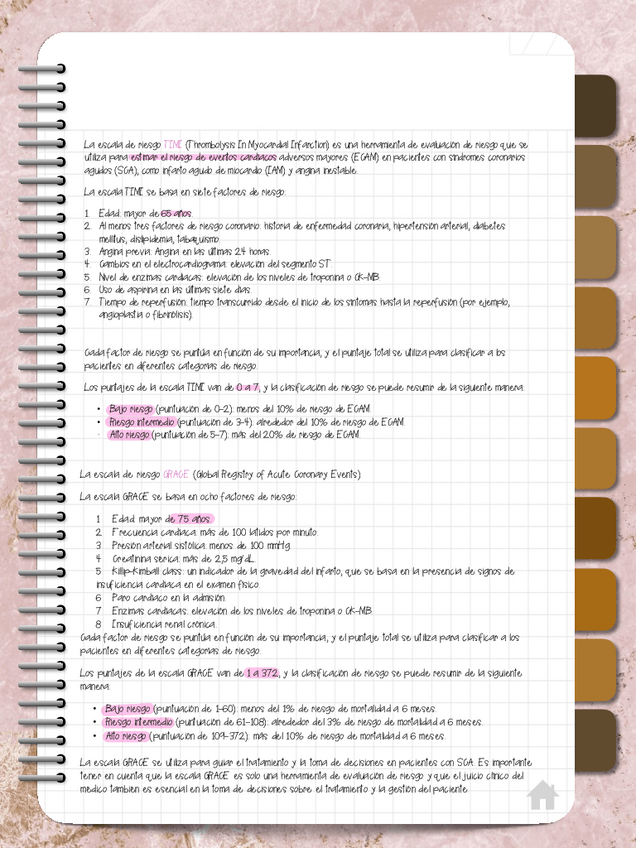 La escala de riesgo TIMI (Thrombolysis In Myocardial Infarction) es una herramienta de evaluación de riesgo que se
utiliza para estimar el riesgo de eventos cardíacos adversos mayores (ECAM) en pacientes con síndromes coronarios
agudos (SCA), como infarto agudo de miocardio (IAM) y angina inestable.
La escala TIMI se basa en siete factores de riesgo:
1. Edad: mayor de 65 años.
2. Al menos tres factores de riesgo coronario: historia de enfermedad coronaria, hipertensión arterial, diabetes
mellitus, dislipidemia, tabaquismo.
3. Angina previa: Angina en las últimas 24 horas.
4. Cambios en el electrocardiograma: elevación del segmento ST.
5. Nivel de enzimas cardíacas: elevación de los niveles de troponina o CK-MB.
6. Uso de aspirina en las últimas siete días.
7. Tiempo de reperfusión: tiempo transcurrido desde el inicio de los síntomas hasta la reperfusión (por ejemplo,
angioplastia o fibrinólisis).
Cada factor de riesgo se puntúa en función de su importancia, y el puntaje total se utiliza para clasificar a los
pacientes en diferentes categorías de riesgo.
Los puntajes de la escala TIMI van de 0 a 7, y la clasificación de riesgo se puede resumir de la siguiente manera:
• Bajo riesgo (puntuación de 0-2): menos del 10% de riesgo de ECAM.
• Riesgo intermedio (puntuación de 3-4): alrededor del 10% de riesgo de ECAM.
• Alto riesgo (puntuación de 5-7): más del 20% de riesgo de ECAM.
La escala de riesgo GRACE (Global Registry of Acute Coronary Events)
La escala GRACE se basa en ocho factores de riesgo:
1 Edad: mayor de 75 años.
2 Frecuencia cardíaca: más de 100 latidos por minuto.
3 Presión arterial sistólica: menos de 100 mmHg.
4 Creatinina sérica: más de 2,5 mg/dL.
5 Killip-Kimball class: un indicador de la gravedad del infarto, que se basa en la presencia de signos de
insuficiencia cardíaca en el examen físico.
6 Paro cardíaco en la admisión.
7 Enzimas cardíacas: elevación de los niveles de troponina o CK-MB.
8 Insuficiencia renal crónica.
Cada factor de riesgo se puntúa en función de su importancia, y el puntaje total se utiliza para clasificar a los
pacientes en diferentes categorías de riesgo.
Los puntajes de la escala GRACE van de 1 a 372, y la clasificación de riesgo se puede resumir de la siguiente
manera:
• Bajo riesgo (puntuación de 1-60): menos del 1% de riesgo de mortalidad a 6 meses.
• Riesgo intermedio (puntuación de 61-108): alrededor del 3% de riesgo de mortalidad a 6 meses.
• Alto riesgo (puntuación de 109-372): más del 10% de riesgo de mortalidad a 6 meses.
La escala GRACE se utiliza para guiar el tratamiento y la toma de decisiones en pacientes con SCA. Es importante
tener en cuenta que la escala GRACE es solo una herramienta de evaluación de riesgo y que el juicio clínico del
médico también es esencial en la toma de decisiones sobre el tratamiento y la gestión del paciente.